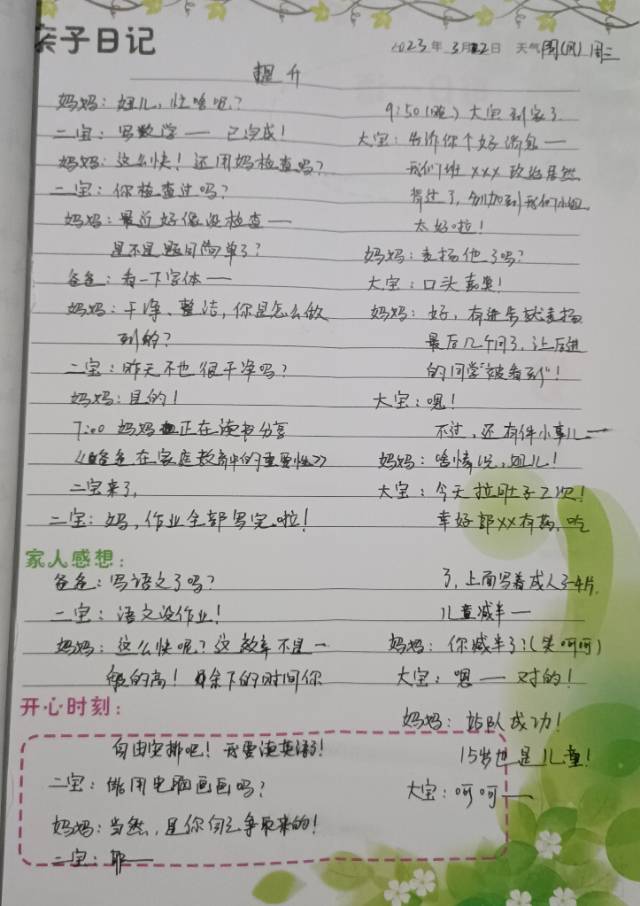 亲子日记
2023年3月22日 天气 阴(风) 周三
提升
妈妈：妞儿，忙啥呢？
二宝：写数学——已完成！
妈妈：这么快！还用妈检查吗？
二宝：你检查过吗？
妈妈：最近好像没检查——
是不是题目简单了？
爸爸：看一下字体——
妈妈：干净、整洁，你是怎么做
到的？
二宝：昨天不也很干净吗？
妈妈：是的！
7:00 妈妈正在读书分享
《爸爸在家庭教育中的重要性》
二宝来了，
二宝：妈，作业全部写完啦！
家人感想：
爸爸：写语文了吗？
二宝：语文没作业！
妈妈：这么快呢？这效率不是一
般的高！剩余下的时间你
开心时刻：
自由安排吧！我要读英语了！
二宝：能用电脑画画吗？
妈妈：当然，是你自己争取来的！
二宝：耶——
9:50(晚) 大宝到家了
大宝：告诉你个好消息——
我们班XXX 政治居然
背过了，分加到我们小组
太好啦！
妈妈：表扬他了吗？
大宝：口头表奖！
妈妈：好，有进步就表扬
最后几个月了，让后进
的同学"被看到"！
大宝：嗯！
不过，还有件小事儿——
妈妈：啥情况，妞儿！
大宝：今天拉肚子2次！
幸好郭XX有药，吃
了，上面写着成人3-4片，
儿童减半——
妈妈：你减半了？(笑呵呵)
大宝：嗯——对的！
妈妈：站队成功！
15岁也是儿童！
大宝：呵呵——